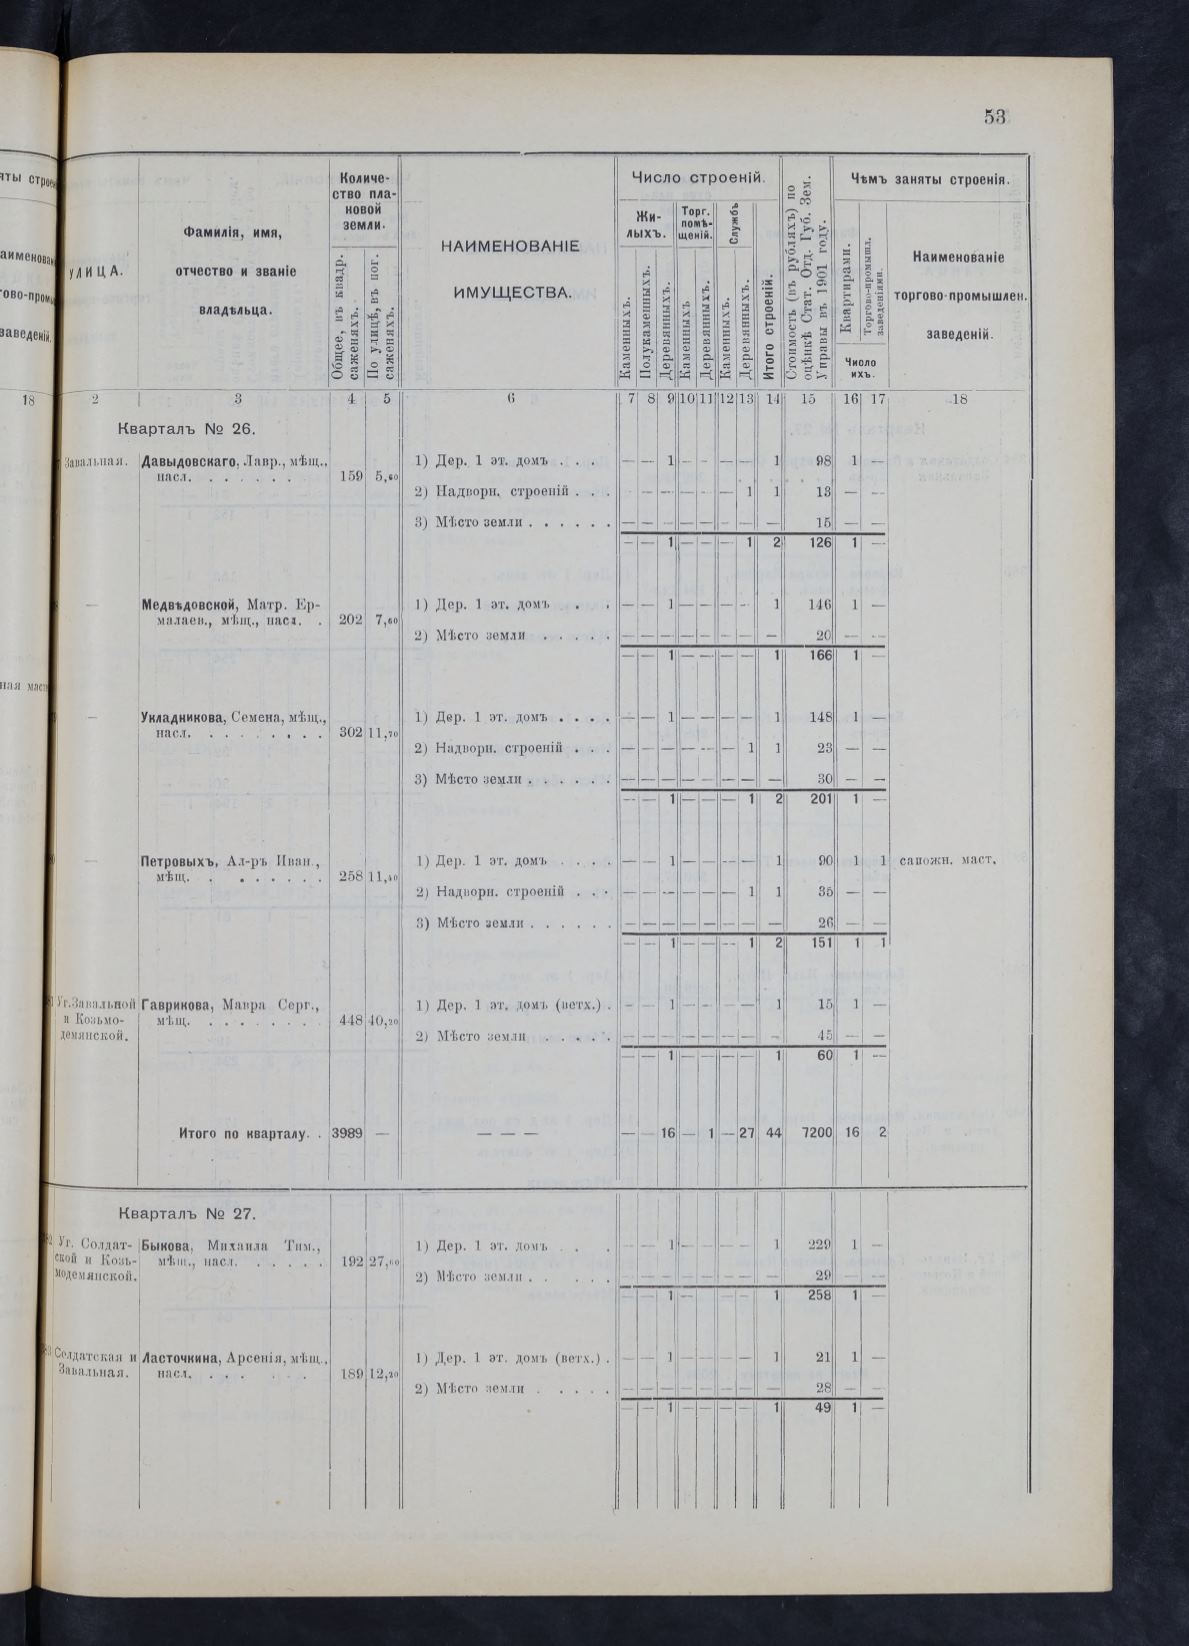 53
УЛИЦА.
Фамилія, имя,
отчество и званіе
владѣльца.
Количе-
ство пла-
новой
земли.
Общее, въ квадр.
саженяхъ.
По улицѣ, въ пог.
саженяхъ.
НАИМЕНОВАНІЕ
ИМУЩЕСТВА.
Число строеній.
Жи-
лыхъ.
Торг.
помѣ-
щеній.
Службъ
Каменныхъ.
Полукаменныхъ.
Деревянныхъ.
Каменныхъ
Деревянныхъ.
Каменныхъ.
Деревянныхъ.
Итого строеній.
Стоимость (въ рубляхъ) по
оцѣнкѣ Стат. Отд. Губ. Зем.
Управы въ 1901 году.
Чѣмъ заняты строенія.
Квартирами.
Торгово-промышл.
заведеніями.
Число
ихъ.
Наименованіе
торгово-промышлен.
заведеній.
18 2 3 4 5 6 7 8 9 10 11 12 13 14 15 16 17 18
Кварталъ № 26.
Завальная. Давыдовскаго, Лавр., мѣщ., 1) Дер. 1 эт. домъ . . . — — 1 — — — — 1 98 1 —
насл. . . . . . . 159 5,60
2) Надворн. строеній . . . — — — — — — 1 1 13 — —
3) Мѣсто земли . . . . . . — — — — — — — — 15 — —
— — 1 — — — 1 2 126 1 —
— Медвѣдовской, Матр. Ер- 1) Дер. 1 эт. домъ . . . — — 1 — — — — 1 146 1 —
малаев., мѣщ., насл. . 202 7,60
2) Мѣсто земли . . . . . — — — — — — — — 20 — —
— — 1 — — — — 1 166 1 —
— Укладникова, Семена, мѣщ., 1) Дер. 1 эт. домъ . . . . — — 1 — — — — 1 148 1 —
насл. . . . . . . . . 302 11,70
2) Надворн. строеній . . . — — — — — — 1 1 23 — —
3) Мѣсто земли . . . . . . — — — — — — — — 30 — —
— — 1 — — — 1 2 201 1 —
— Петровыхъ, Ал-ръ Иван., 1) Дер. 1 эт. домъ . . . . — — 1 — — — — 1 90 1 1 сапожн. маст.
мѣщ. . . . . . . . 258 11,40
2) Надворн. строеній . . . — — — — — — 1 1 35 — —
3) Мѣсто земли . . . . . . — — — — — — — — 26 — —
— — 1 — — — 1 2 151 1 1
Уг. Завальной Гаврикова, Мавра Серг., 1) Дер. 1 эт. домъ (ветх.) . — — 1 — — — — 1 15 1 —
и Козьмо- мѣщ. . . . . . . . . 448 40,20
демянской. 2) Мѣсто земли . . . . . — — — — — — — — 45 — —
— — 1 — — — — 1 60 1 —
Итого по кварталу. . 3989 — — — — — — 16 — 1 — 27 44 7200 16 2
Кварталъ № 27.
Уг. Солдат- Быкова, Михаила Тим., 1) Дер. 1 эт. домъ . . . — — 1 — — — — 1 229 1 —
ской и Козь- мѣщ., насл. . . . . . 192 27,60
модемянской. 2) Мѣсто земли . . . . . — — — — — — — — 29 — —
— — 1 — — — 1 258 1 —
Солдатская и Ласточкина, Арсенія, мѣщ., 1) Дер. 1 эт. домъ (ветх.) . — — 1 — — — — 1 21 1 —
Завальная. насл. . . . . . . 189 12,20
2) Мѣсто земли . . . . . — — — — — — — — 28 — —
— — 1 — — — — 1 49 1 —